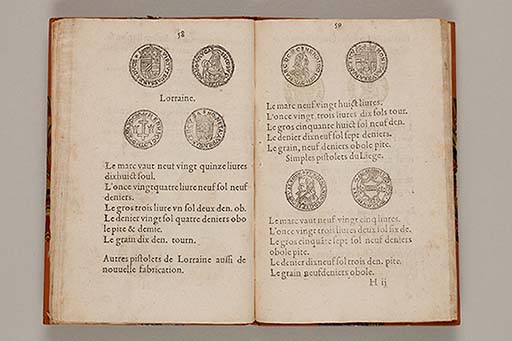 58
Lorraine.
Le marc vaut neuf vingt quinze liures
dixhuict soul.
L'once vingtquatre liure neuf sol neuf
deniers.
Le gros trois liure vn sol deux den. ob.
Le denier vingt sol quatre deniers obo
le pite & demie.
Le grain dix den. tourn.
Autres pistolets de Lorraine aussi de
nouuelle fabrication.
59
Le marc neuf vingt huict liures.
L'once vingt trois liures dix sols tour.
Le gros cinquante huict sol neuf den.
Le denier dixneuf sol sept deniers.
Le grain, neuf deniers obole pite.
Simples pistolets du Liege.
Le marc vaut neuf vingt cinq liures.
L'once vingt trois liures deux sol six de.
Le gros cinquāte sept sol neuf deniers
obole pite.
Le denier dixneuf sol trois den. pite.
Le grain neufdeniers obole.
H ij